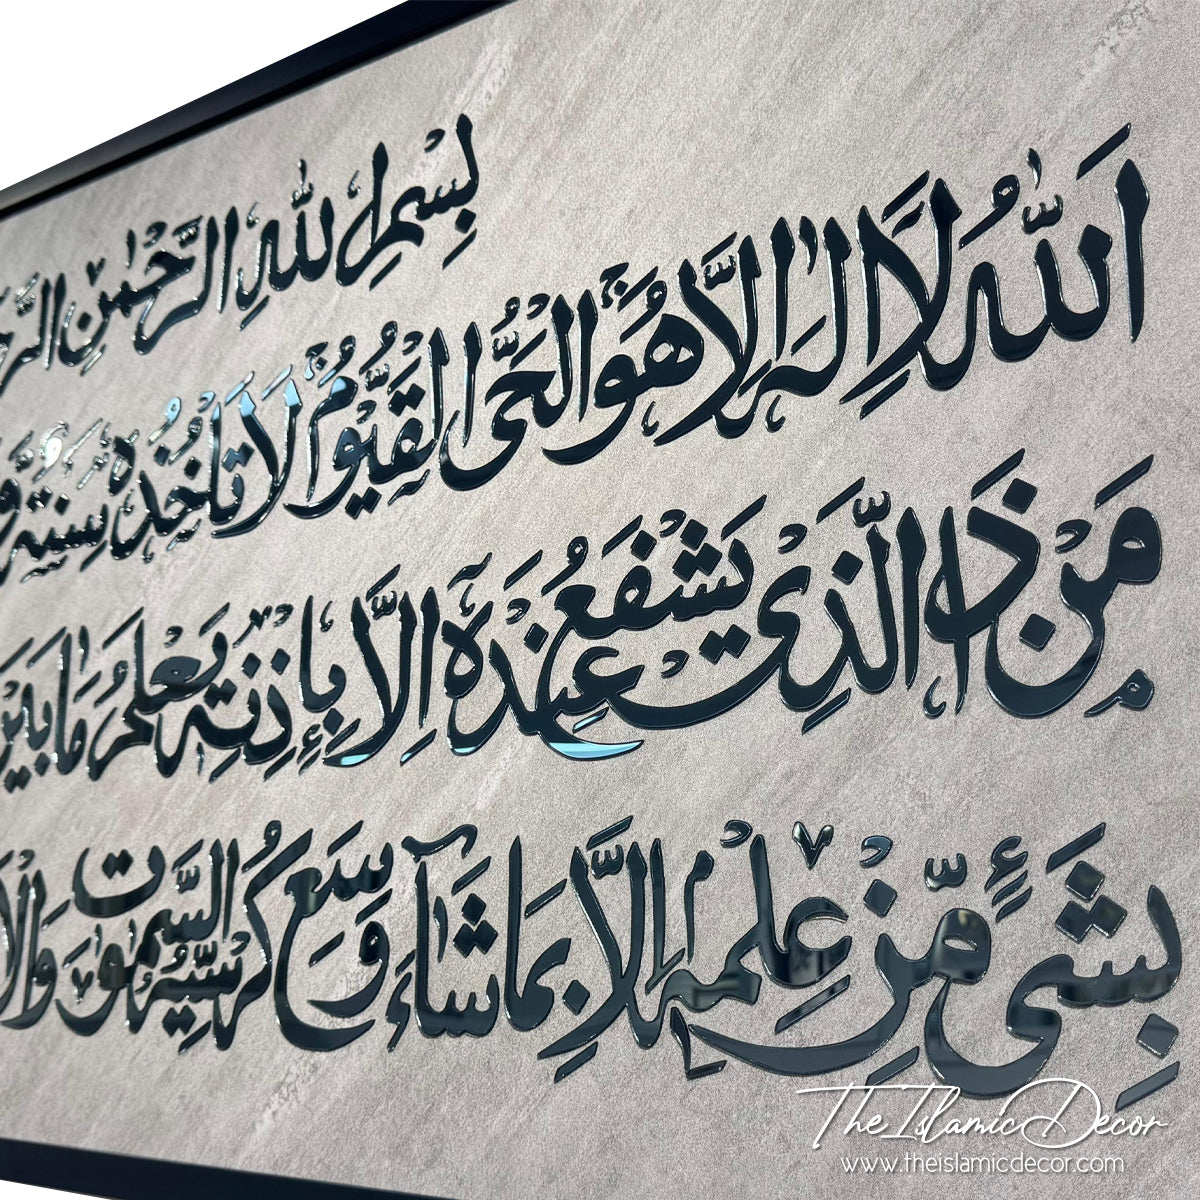 بِسْمِ اللهِ الرَّحْمٰنِ
اَللّٰهُ لَا اِلٰهَ اِلَّا هُوَ الْحَىُّ الْقَيُّوْمُ لَا تَاْخُذُهٗ سِنَةٌ
مَنْ ذَا الَّذِىْ يَشْفَعُ عِنْدَهٗٓ اِلَّا بِاِذْنِهٖ يَعْلَمُ مَا بَيْنَ
بِشَىْءٍ مِّنْ عِلْمِهٖٓ اِلَّا بِمَا شَآءَ وَسِعَ كُرْسِيُّهُ السَّمٰوٰتِ
The Islamic Decor
www.theislamicdecor.com